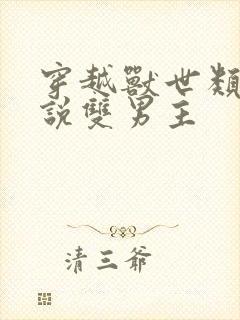 穿越獸世類
說雙男主
清三爺